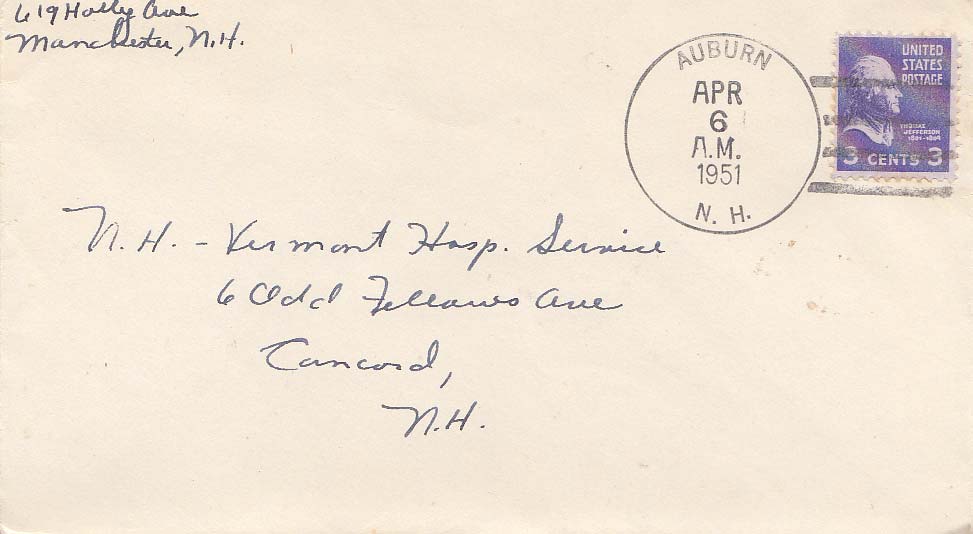 619 Holly Ave
Manchester, N.H.
AUBURN
APR
6
A.M.
1951
N. H.
UNITED
STATES
POSTAGE
THOMAS
JEFFERSON
1801-1809
3 CENTS 3
N.H. - Vermont Hosp. Service
6 Odd Fellows Ave
Concord,
N.H.